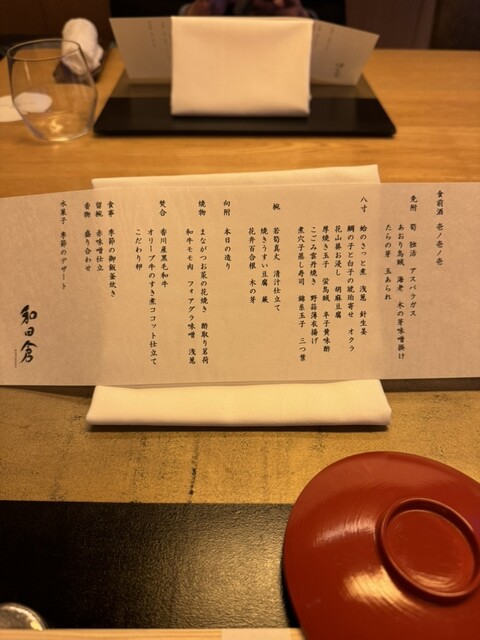 食前酒 壱ノ壱ノ壱
先附 筍 独活 アスパラガス
あおり烏賊 海老 木の芽味噌掛け
たらの芽 玉あられ
八寸 蛤のさっと煮 浅葱 針生姜
鯛の子と白子の琥珀寄せ オクラ
花山葵お浸し 胡麻豆腐
厚焼き玉子 蛍烏賊 辛子黄味酢
こごみ雲丹焼き 野蒜薄衣揚げ
煮穴子蒸し寿司 錦糸玉子 三つ葉
椀 若筍真丈 清汁仕立て
焼きうすい豆腐 蕨
花弁百合根 木の芽
向附 本日の造り
焼物 まながつお菜の花焼き 酢取り茗荷
和牛モモ肉 フォアグラ味噌 浅葱
焚合 香川産黒毛和牛
オリーブ牛のすき煮ココット仕立て
こだわり卵
食事 季節の御飯釜炊き
留椀 赤味噌仕立
香物 盛り合わせ
水菓子 季節のデザート
和田倉